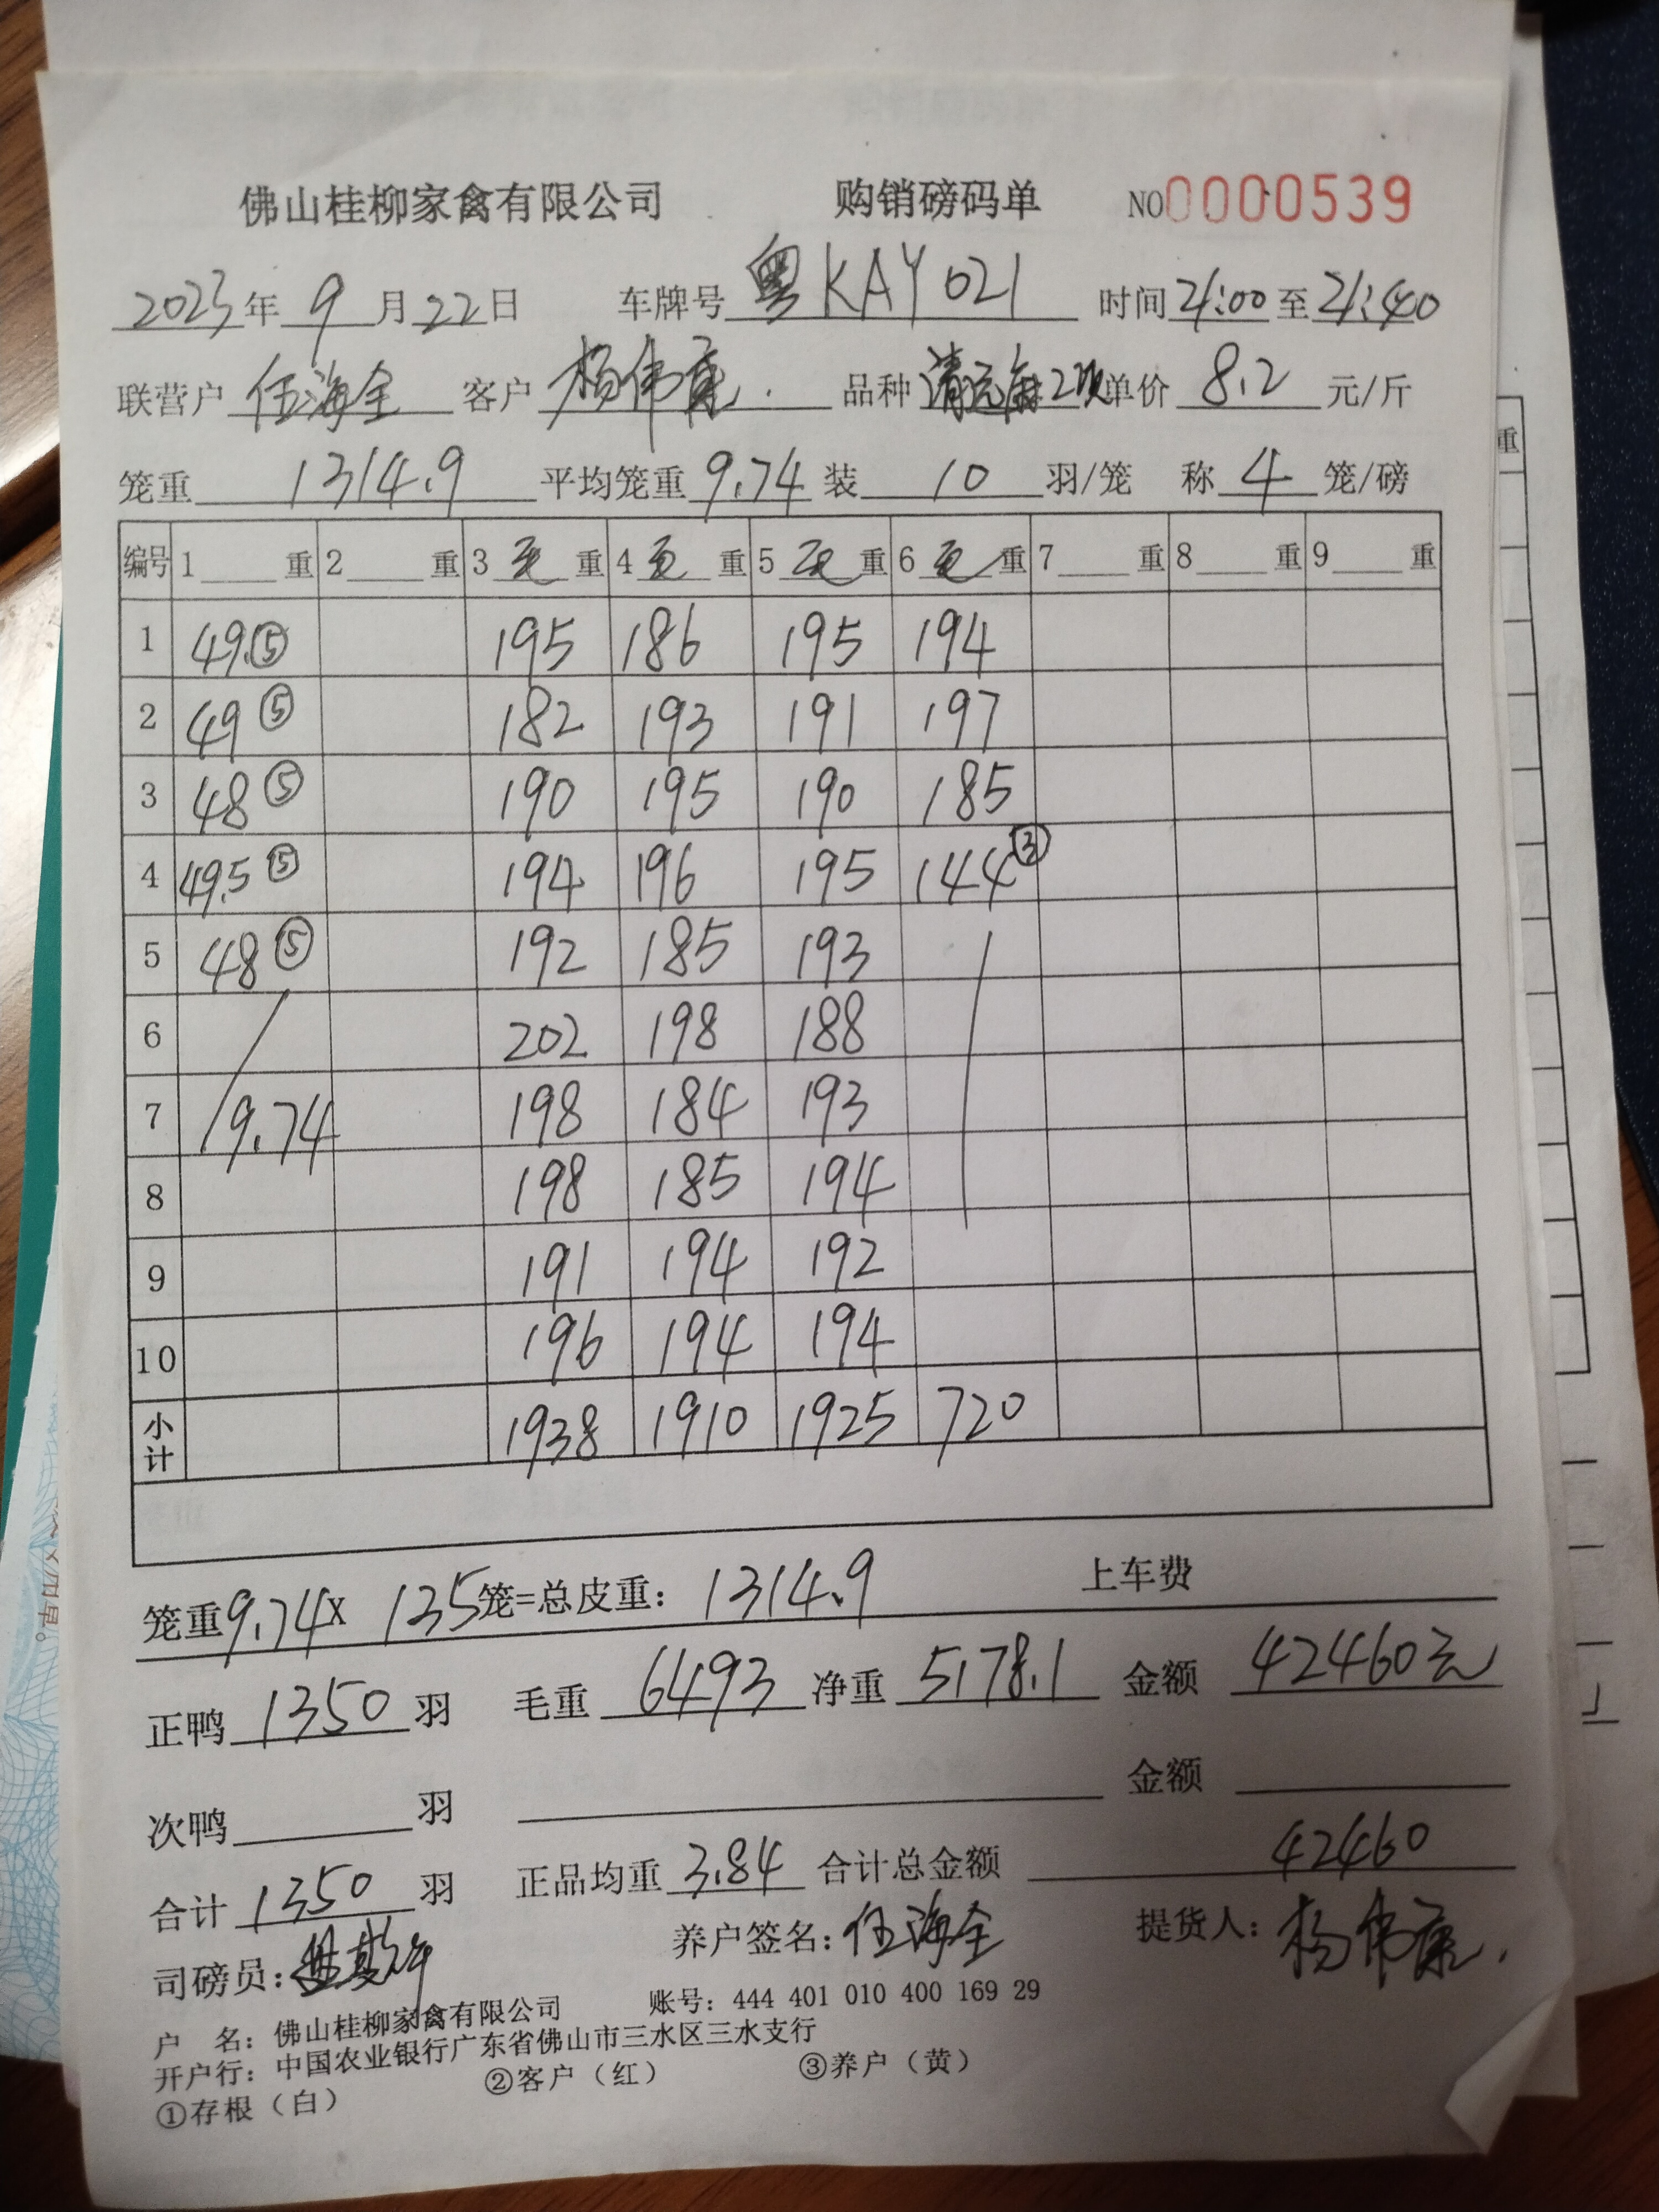 佛山桂柳家禽有限公司 购销磅码单 NO0000539
2023年 9月22日 车牌号 粤KAY021 时间 21:00 至 21:40
联营户 任海全 客户 杨伟康. 品种 清远麻2次 单价 8.2 元/斤
笼重 1314.9 平均笼重 9.74 装 10 羽/笼 称 4 笼/磅
编号 1 重 2 重 3 毛 重 4 毛 重 5 毛 重 6 毛 重 7 重 8 重 9 重
1 49.⑤ 195 186 195 194
2 49⑤ 182 193 191 197
3 48⑤ 190 195 190 185
4 49.5⑤ 194 196 195 144③
5 48⑤ 192 185 193
6 202 198 188
7 9.74 198 184 193
8 198 185 194
9 191 194 192
10 196 194 194
小计 1938 1910 1925 720
笼重9.74x 135笼=总皮重: 1314.9 上车费
正鸭 1350 羽 毛重 6493 净重 5178.1 金额 42460元
次鸭 羽 金额
合计 1350 羽 正品均重 3.84 合计总金额 42460
司磅员: 养户签名: 任海全 提货人: 杨伟康.
户 名: 佛山桂柳家禽有限公司 账号: 444 401 010 400 169 29
开户行: 中国农业银行广东省佛山市三水区三水支行
①存根（白） ②客户（红） ③养户（黄）
重